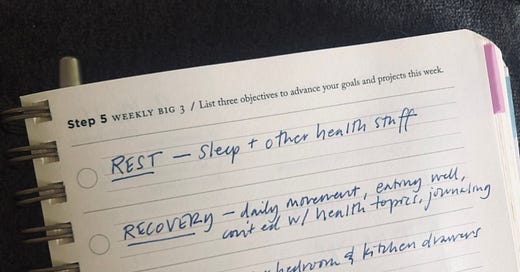 Step 5 WEEKLY BIG 3 / List three objectives to advance your goals and projects this week.
REST – Sleep + other health stuff
RECOVERY – daily movement, eating well,
con't ed w/ health topics, journaling
bedroom & kitchen drawers